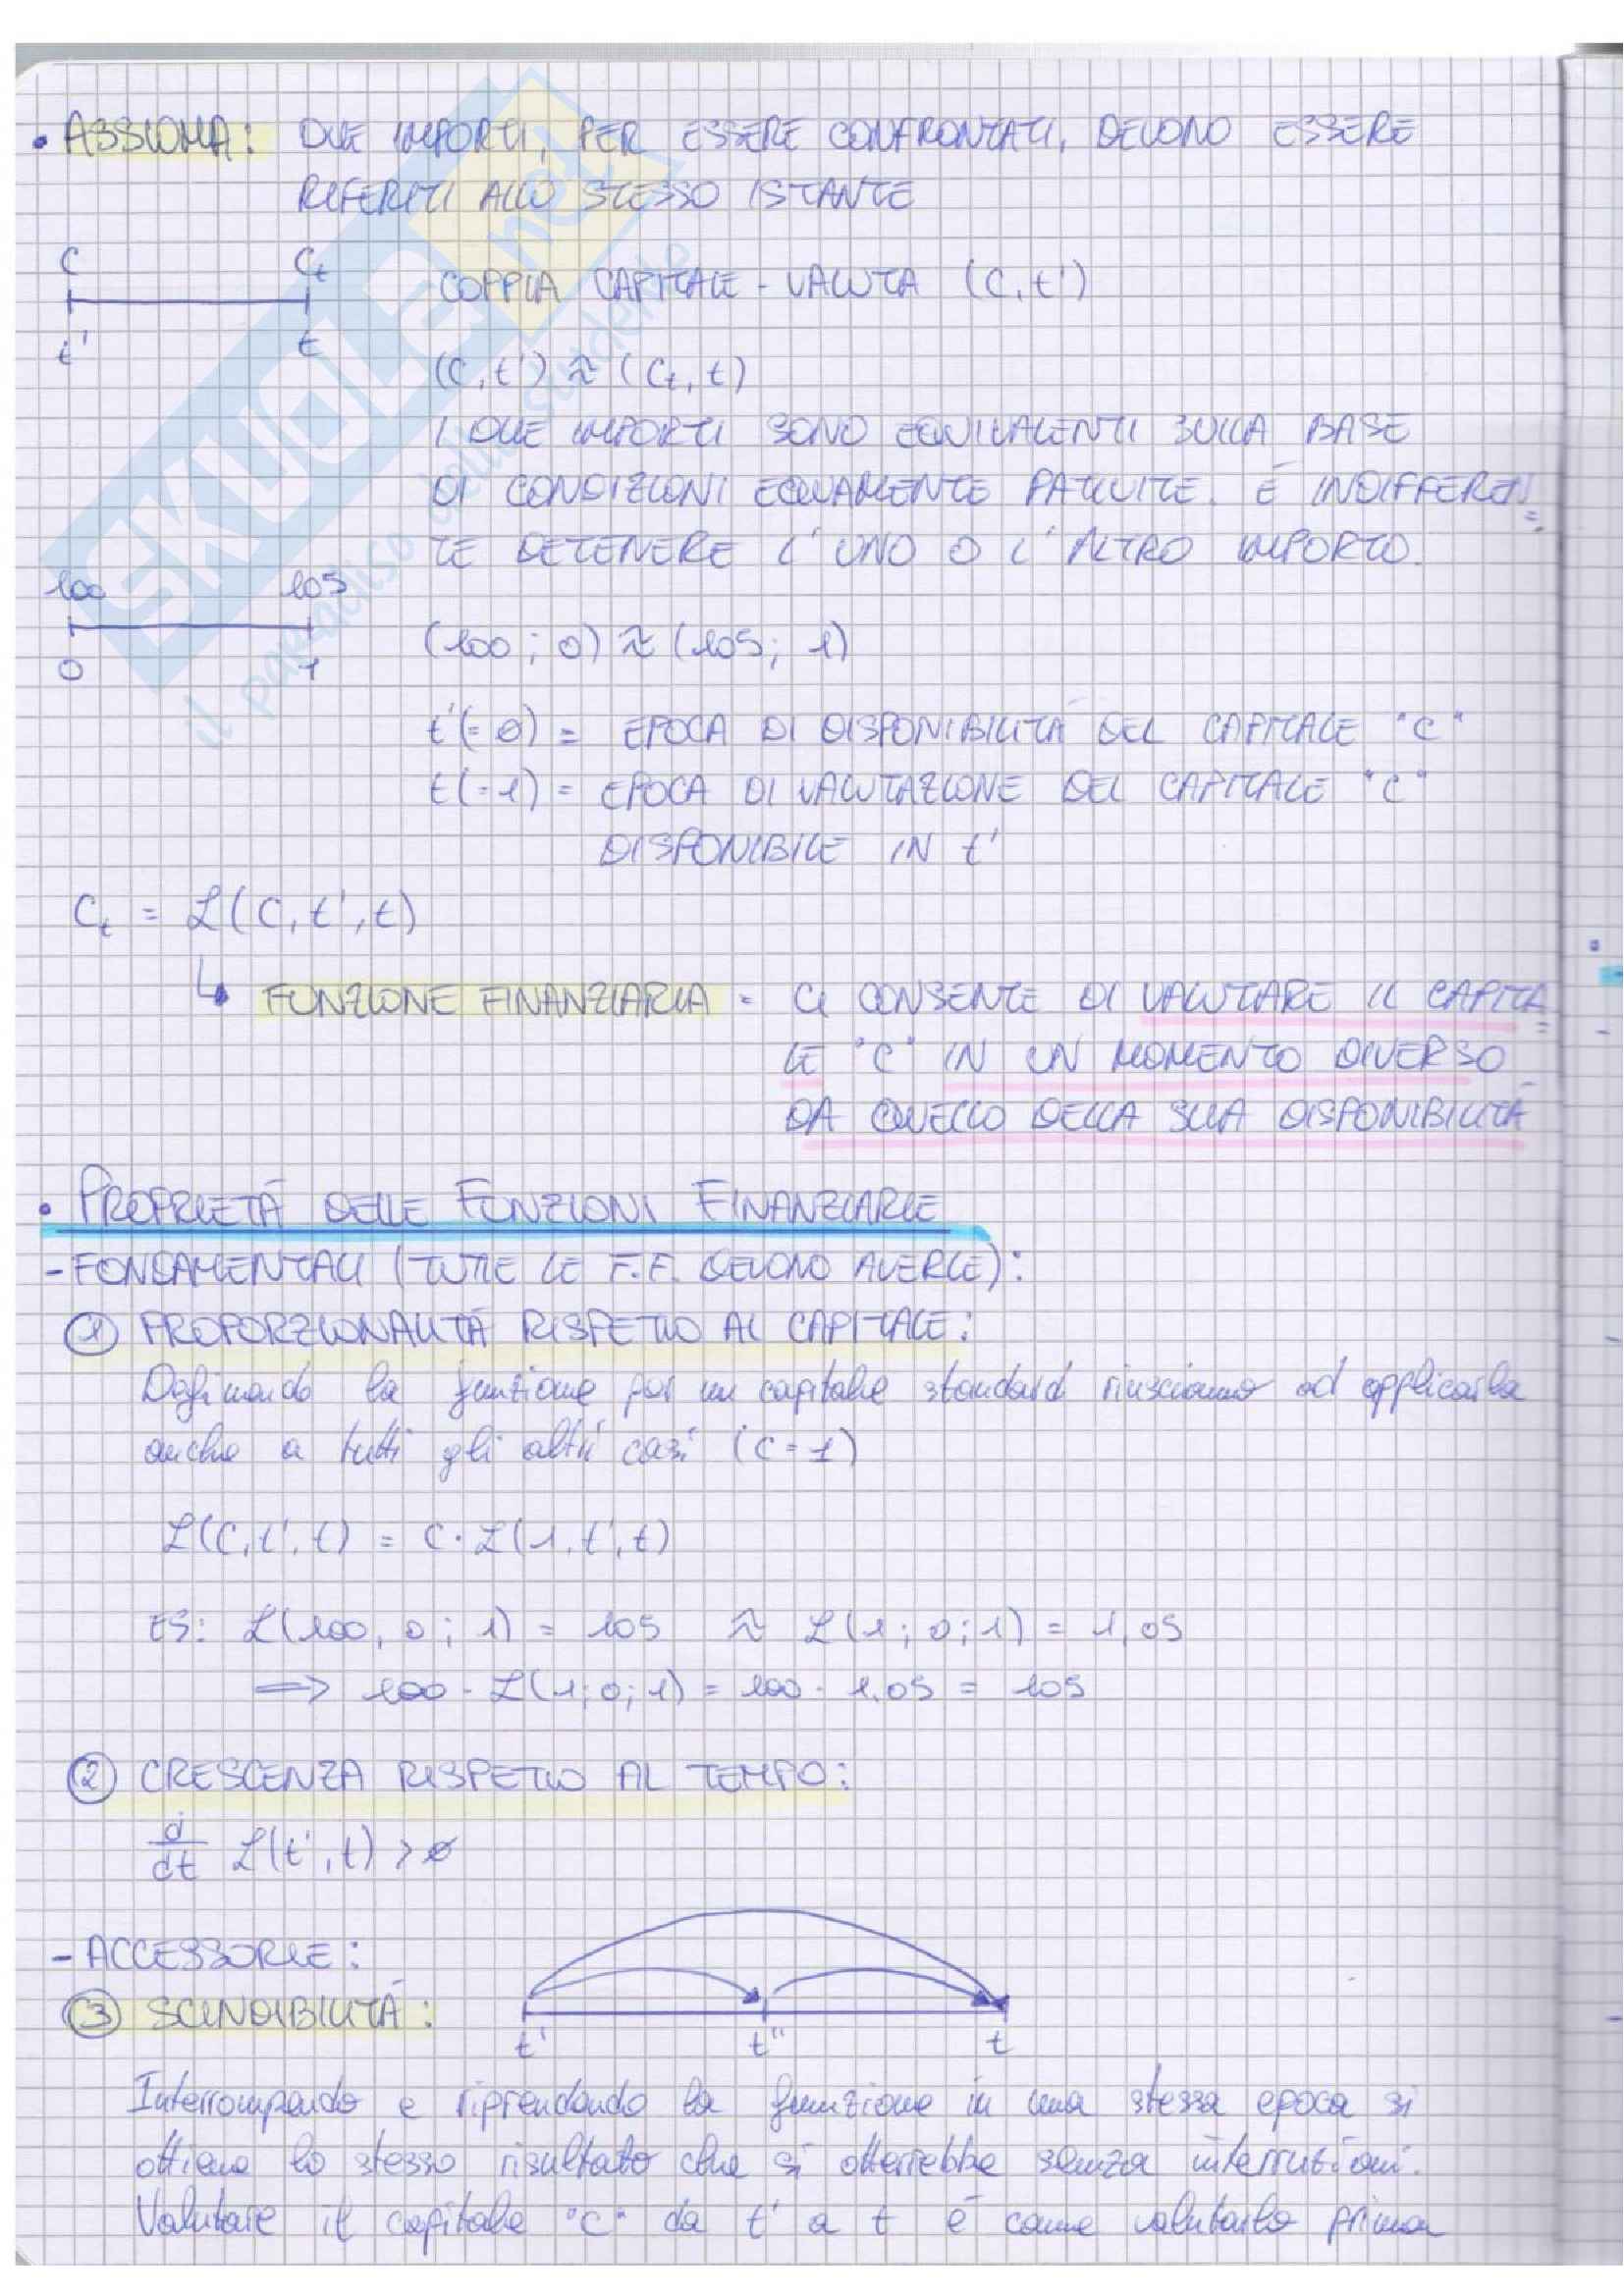 • ASSIOMA: DUE IMPORTI, PER ESSERE CONFRONTATI, DEVONO ESSERE
RIFERITI ALLO STESSO ISTANTE
C Cₜ
t' t
COPPIA CAPITALE - VALUTA (C, t')
(C, t') ≈ (Cₜ, t)
I DUE IMPORTI SONO EQUIVALENTI SULLA BASE
DI CONDIZIONI EQUAMENTE PATTUITE. É INDIFFEREN=
TE DETENERE L'UNO O L'ALTRO IMPORTO.
100 105
0 1
(100 ; 0) ≈ (105 ; 1)
t'(=0) = EPOCA DI DISPONIBILITÁ DEL CAPITALE "C"
t(=1) = EPOCA DI VALUTAZIONE DEL CAPITALE "C"
DISPONIBILE IN t'
Cₜ = ℒ(C, t', t)
↳ FUNZIONE FINANZIARIA = CI CONSENTE DI VALUTARE IL CAPITA=
LE "C" IN UN MOMENTO DIVERSO
DA QUELLO DELLA SUA DISPONIBILITÁ
• PROPRIETÁ DELLE FUNZIONI FINANZIARIE
- FONDAMENTALI (TUTTE LE F.F. DEVONO AVERLE):
① PROPORZIONALITÁ RISPETTO AL CAPITALE:
Definendo la funzione per un capitale standard riusciamo ad applicarla
anche a tutti gli altri casi (C=1)
ℒ(C, t', t) = C · ℒ(1, t', t)
ES: ℒ(100, 0 ; 1) = 105 ≈ ℒ(1 ; 0 ; 1) = 1,05
⟹ 100 · ℒ(1; 0; 1) = 100 · 1,05 = 105
② CRESCENZA RISPETTO AL TEMPO:
d/dt ℒ(t', t) > 0
- ACCESSORIE:
③ SCINDIBILITÁ:
t' t" t
Interrompendo e riprendendo la funzione in una stessa epoca si
ottiene lo stesso risultato che si otterrebbe senza interruzioni.
Valutare il capitale "C" da t' a t é come valutarlo prima
SKUOLA.net
il paradiso dello studente